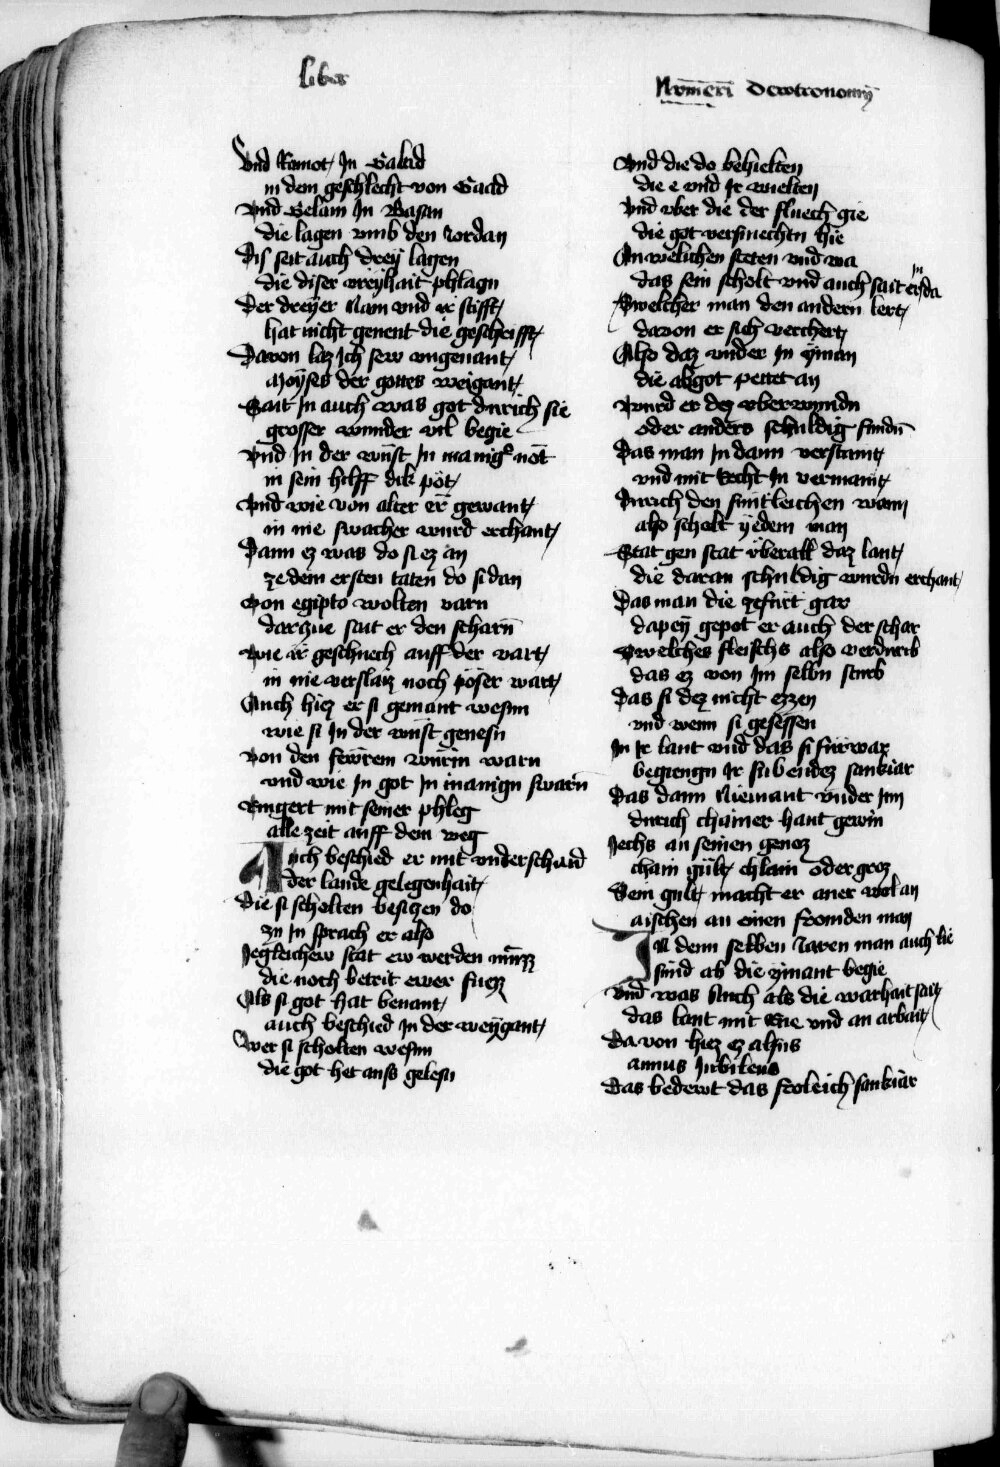 liber
Nomeri Dewtronomy
Vnd Ramot In Galaid
in dem geschlecht von Gaad
Vnd Gelam In Basan
die lagen vmb den Jordan
Dis seit auch dreÿ lagen
die diser vreÿhait phlagn
Der dreÿer Nam vnd ir stifft
hat nicht genent die geschrifft
Davon laz ich sew vngenant
Moÿses der gottes weigant
Sait In auch was got durich sie
grosser wunder vil begie
Vnd In der wüst In manigͤ not
in sein hilff dik pöt
Vnd wie von alter er gewant
in nie swacher wurd erchant
Dann ez was do si ez an
ze dem ersten taten do si dan
Von egipto wolten varn
darzue sait er den scharn
Wie ir geschuech auff der vart
in nie verslaiz noch pöser wart
Auch hiez er si gemant wesnn
wie si In der wüst genesn
Von den fewrem würm warn
vnd wie In got In manign swarn
Vmgert mit seiner phleg
alle zeit auff dem weg
Auch beschied er mit vnderschaid
der lande gelegenhait
Die si scholten besitzen do
zu In sprach er also
Jegleichew stat ew werden muezz
die noch betrit ewer fuezz
Als si got hat benant
auch beschied In der weÿgant
Wer si scholten wesnn
die got het auss gelesn
Vnd die do behielten
die e vnd Ir wielten
Vnd vber die der fluech gie
die got versmechtn hie
An welichen steten vnd wa
das sein scholt vnd auch sait er In da
Swelcher man den andern lert
davon er sich verchert
Also daz vnder In ÿman
die abgot pettet an
Wurd er dez vberwundn
oder anders schuldig fundn
Das man In dann verstamt
vnd mit Recht In vermant
Durich den suntleichen wann
also scholt ÿedem man
Stat gen stat vberall daz lant
die daran schuldig wurdn erchant
Das man die zefürt gar
dapeÿ gepot er auch der schar
Swelches fleischs also verdurib
das ez von Im selbn sturb
Das si dez nicht ezzen
vnd wenn si gesessen
In Ir lant vnd das si fürwar
begiengn Ir sibendez sankiar
Das dann Niemant vnder Im
durich chainer hant gewin
Jechs an seinen genoz
chain gült chlain oder groz
Sein gult macht er aner wol an
aischen an einen fromden man
In denn selben Jaren man auch lie
sünd ab die ÿmant begie
Vnd was auch als die warhait sait
das lant mit Rue vnd an arbait
Davon hiez ez alsus
annus Jubileus
Das bedewt das froleich sankiar